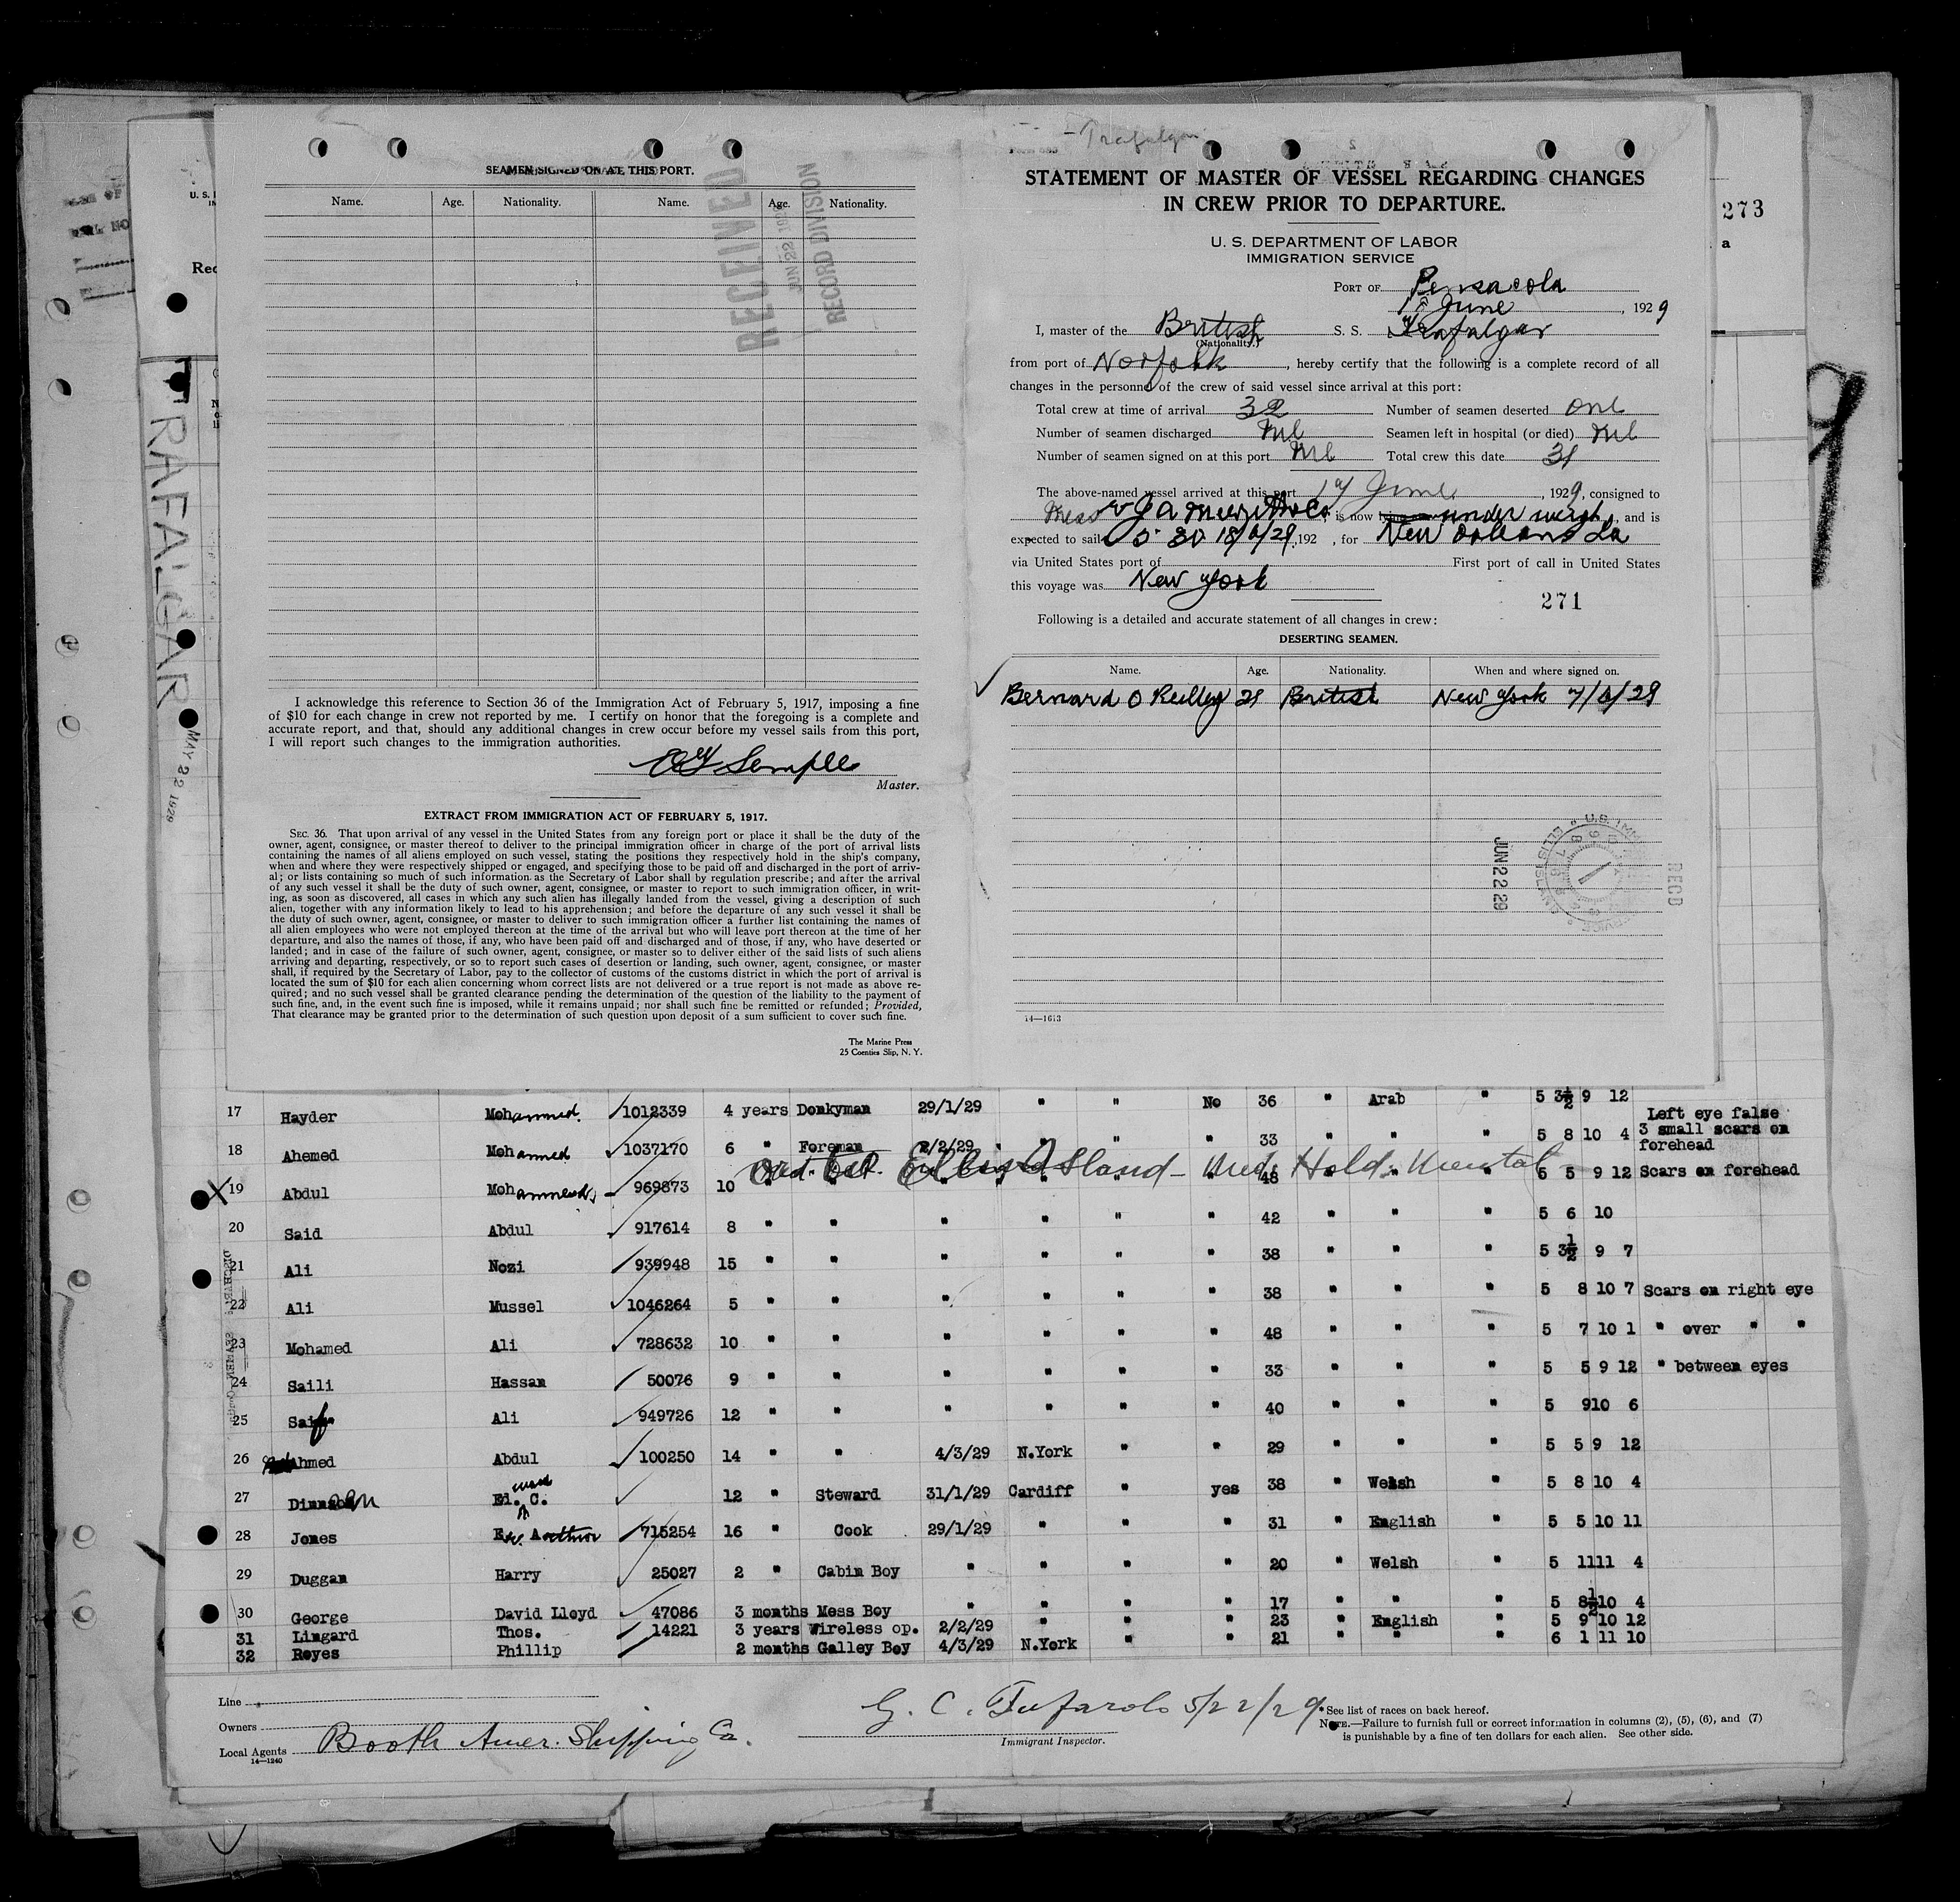 SEAMEN SIGNED ON AT THIS PORT.
Name. Age. Nationality. Name. Age. Nationality.
RECEIVED
JUN 22 1929
RECORD DIVISION
I acknowledge this reference to Section 36 of the Immigration Act of February 5, 1917, imposing a fine
of $10 for each change in crew not reported by me. I certify on honor that the foregoing is a complete and
accurate report, and that, should any additional changes in crew occur before my vessel sails from this port,
I will report such changes to the immigration authorities.
Semple
Master.
EXTRACT FROM IMMIGRATION ACT OF FEBRUARY 5, 1917.
SEC. 36. That upon arrival of any vessel in the United States from any foreign port or place it shall be the duty of the
owner, agent, consignee, or master thereof to deliver to the principal immigration officer in charge of the port of arrival lists
containing the names of all aliens employed on such vessel, stating the positions they respectively hold in the ship's company,
when and where they were respectively shipped or engaged, and specifying those to be paid off and discharged in the port of arriv-
al; or lists containing so much of such information as the Secretary of Labor shall by regulation prescribe; and after the arrival
of any such vessel it shall be the duty of such owner, agent, consignee, or master to report to such immigration officer, in writ-
ing, as soon as discovered, all cases in which any such alien has illegally landed from the vessel, giving a description of such
alien, together with any information likely to lead to his apprehension; and before the departure of any such vessel it shall be
the duty of such owner, agent, consignee, or master to deliver to such immigration officer a further list containing the names of
all alien employees who were not employed thereon at the time of the arrival but who will leave port thereon at the time of her
departure, and also the names of those, if any, who have been paid off and discharged and of those, if any, who have deserted or
landed; and in case of the failure of such owner, agent, consignee, or master so to deliver either of the said lists of such aliens
arriving and departing, respectively, or so to report such cases of desertion or landing, such owner, agent, consignee, or master
shall, if required by the Secretary of Labor, pay to the collector of customs of the customs district in which the port of arrival is
located the sum of $10 for each alien concerning whom correct lists are not delivered or a true report is not made as above re-
quired; and no such vessel shall be granted clearance pending the determination of the question of the liability to the payment of
such fine, and, in the event such fine is imposed, while it remains unpaid; nor shall such fine be remitted or refunded; Provided,
That clearance may be granted prior to the determination of such question upon deposit of a sum sufficient to cover such fine.
The Marine Press
25 Coenties Slip, N. Y.
Trafalgar
STATEMENT OF MASTER OF VESSEL REGARDING CHANGES
IN CREW PRIOR TO DEPARTURE.
U. S. DEPARTMENT OF LABOR
IMMIGRATION SERVICE
PORT OF Pensacola
18 June, 1929
I, master of the British S. S. Trafalgar
(Nationality.)
from port of Norfolk, hereby certify that the following is a complete record of all
changes in the personnel of the crew of said vessel since arrival at this port:
Total crew at time of arrival 32 Number of seamen deserted one
Number of seamen discharged Nil Seamen left in hospital (or died) Nil
Number of seamen signed on at this port Nil Total crew this date 31
The above-named vessel arrived at this port June, 1929, consigned to
is now under weigh, and is
expected to sail 5 30 18/6/29, 192 , for New Orleans La
via United States port of First port of call in United States
this voyage was New York
271
Following is a detailed and accurate statement of all changes in crew:
DESERTING SEAMEN.
Name. Age. Nationality. When and where signed on.
Bernard O Reilley 28 British New York 7/6/29
JUN 22 29
RECD
14—1613
273
a
TRAFALGAR
MAY 22 1929
17 Hayder Mohammed. 1012339 4 years Donkyman 29/1/29 " " No 36 " Arab " 5 3½ 9 12 Left eye false
18 Ahemed Mohammed 1037170 6 " Foreman 2/2/29 " " " 33 " " " 5 8 10 4 3 small scars on forehead
Ellis Island - Med. Hold. Mental
19 Abdul Mohammed 969873 10 " " " " " " 48 " " " 5 5 9 12 Scars on forehead
20 Said Abdul 917614 8 " " " " " " 42 " " " 5 6 10
21 Ali Nozi 939948 15 " " " " " " 38 " " " 5 3½ 9 7
22 Ali Mussel 1046264 5 " " " " " " 38 " " " 5 8 10 7 Scars on right eye
23 Mohamed Ali 728632 10 " " " " " " 48 " " " 5 7 10 1 " over " "
24 Saili Hassan 50076 9 " " " " " " 33 " " " 5 5 9 12 " between eyes
25 Saif Ali 949726 12 " " " " " " 40 " " " 5 9 10 6
26 Ahmed Abdul 100250 14 " " 4/3/29 N.York " " 29 " " " 5 5 9 12
27 Ed. ward C. 12 " Steward 31/1/29 Cardiff " yes 38 " Welsh " 5 8 10 4
28 Jones Arthur 715254 16 " Cook 29/1/29 " " " 31 " English " 5 5 10 11
29 Duggan Harry 25027 2 " Cabin Boy " " " " 20 " Welsh " 5 11 11 4
30 George David Lloyd 47086 3 months Mess Boy " " " " 17 " " " 5 8½ 10 4
31 Lingard Thos. 14221 3 years Wireless op. 2/2/29 " " " 23 " English " 5 9 10 12
32 Reyes Phillip 2 months Galley Boy 4/3/29 N.York " " 21 " " " 6 1 11 10
Line
Owners
Local Agents Booth Amer. Shipping Co.
14—1240
G. C. Tufarolo 5/22/29
Immigrant Inspector.
*See list of races on back hereof.
NOTE.—Failure to furnish full or correct information in columns (2), (5), (6), and (7)
is punishable by a fine of ten dollars for each alien. See other side.